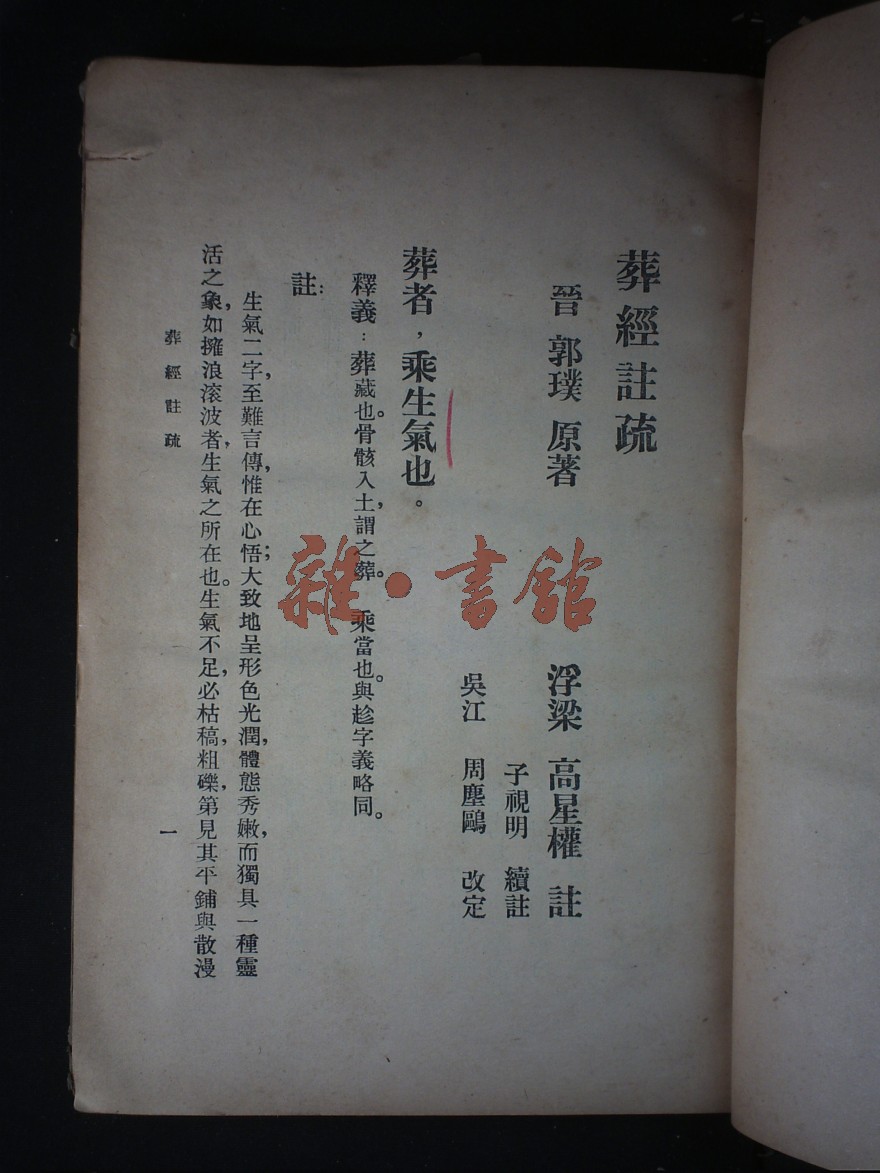 葬經註疏
晉 郭璞 原著
浮梁 高星權 註
子視明 續註
吳江 周塵鷗 改定
葬者，乘生氣也。
釋義：葬藏也。骨骸入土，謂之葬。乘當也。與趁字義略同。
註：
生氣二字，至難言傳，惟在心悟；大致地呈形色光潤，體態秀嫩，而獨具一種靈
活之象，如擁浪滚波者，生氣之所在也。生氣不足，必枯稿，粗礫，第見其平鋪與散漫
葬經註疏
一
雜·書館